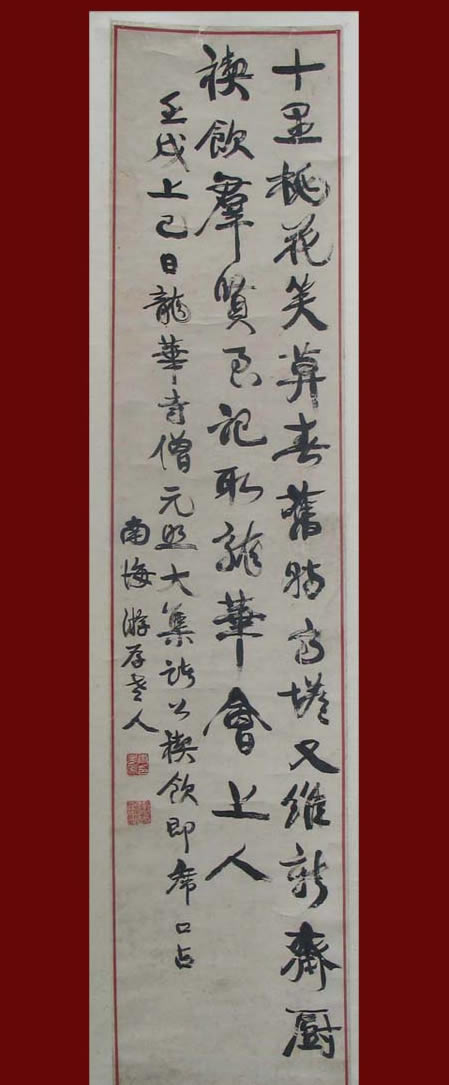 十里桃花笑莫春舊時高塔又維新齋厨
禊飲羣賢至記取龍華會上人
壬戌上巳日龍華寺僧元照大集諸公禊飲即席口占
南海游存老人